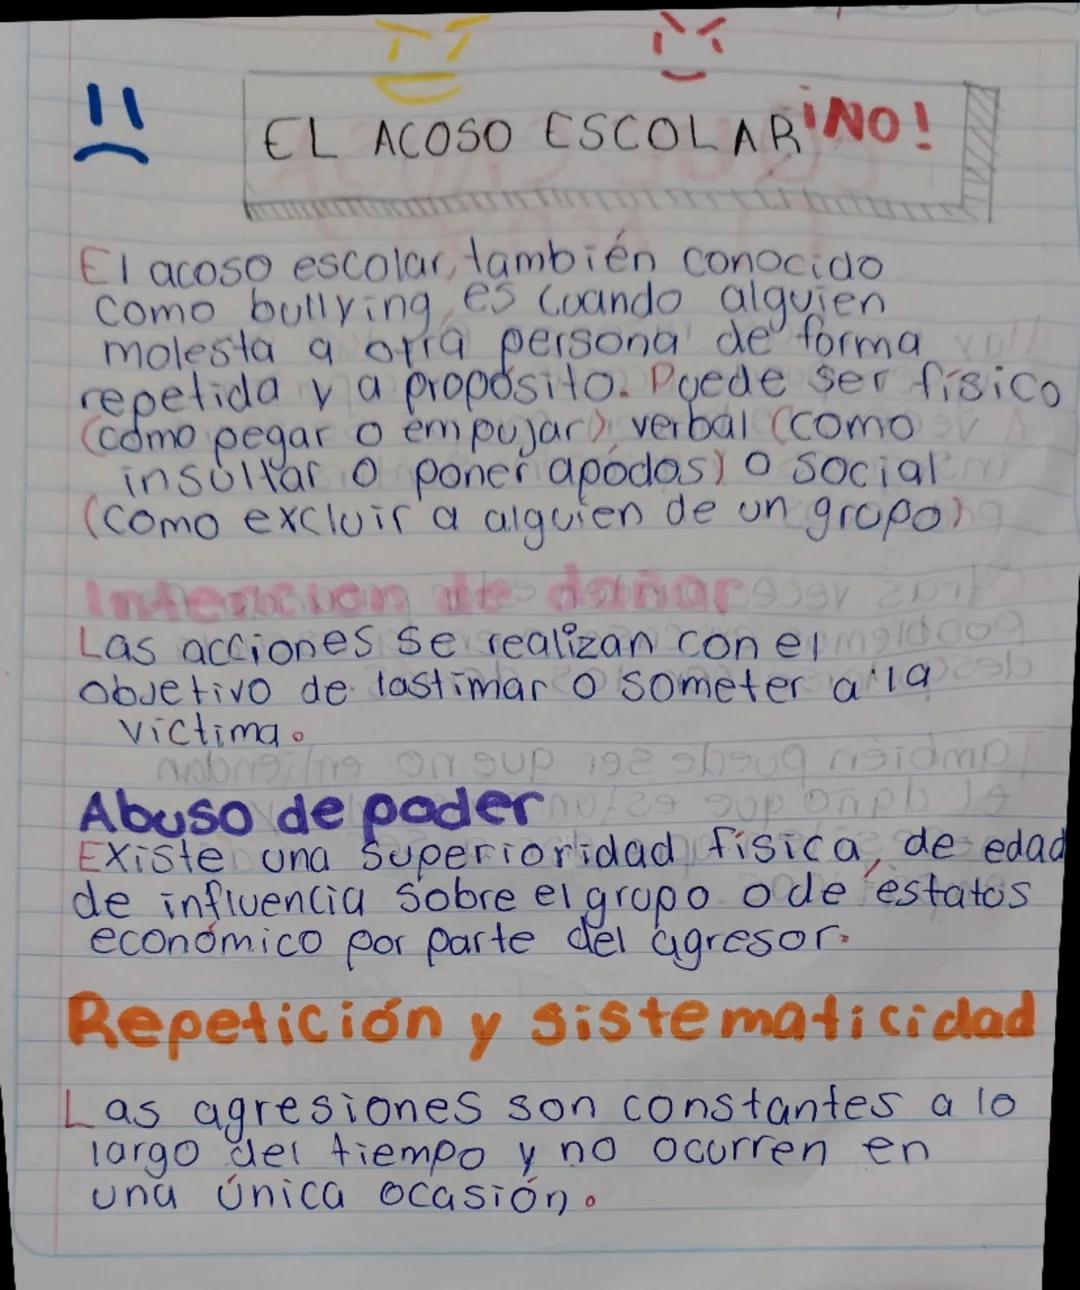 EL ACOSO ESCOLAR ¡NO!
El acoso escolar, también conocido
como bullying, es cuando alguien
molesta a otra persona de forma
repetida y a propósito. Puede ser físico
(como pegar o empujar), verbal (como
insultar o poner apodos) o social
(como excluir a alguien de un grupo)
Intencion de dañar
Las acciones se realizan con el
objetivo de lastimar o someter a la
víctima.
Abuso de poder
Existe una superioridad física, de edad
de influencia sobre el grupo o de estatos
económico por parte del agresor.
Repetición y sistematicidad
Las agresiones son constantes a lo
largo del tiempo y no ocurren en
una única ocasión.